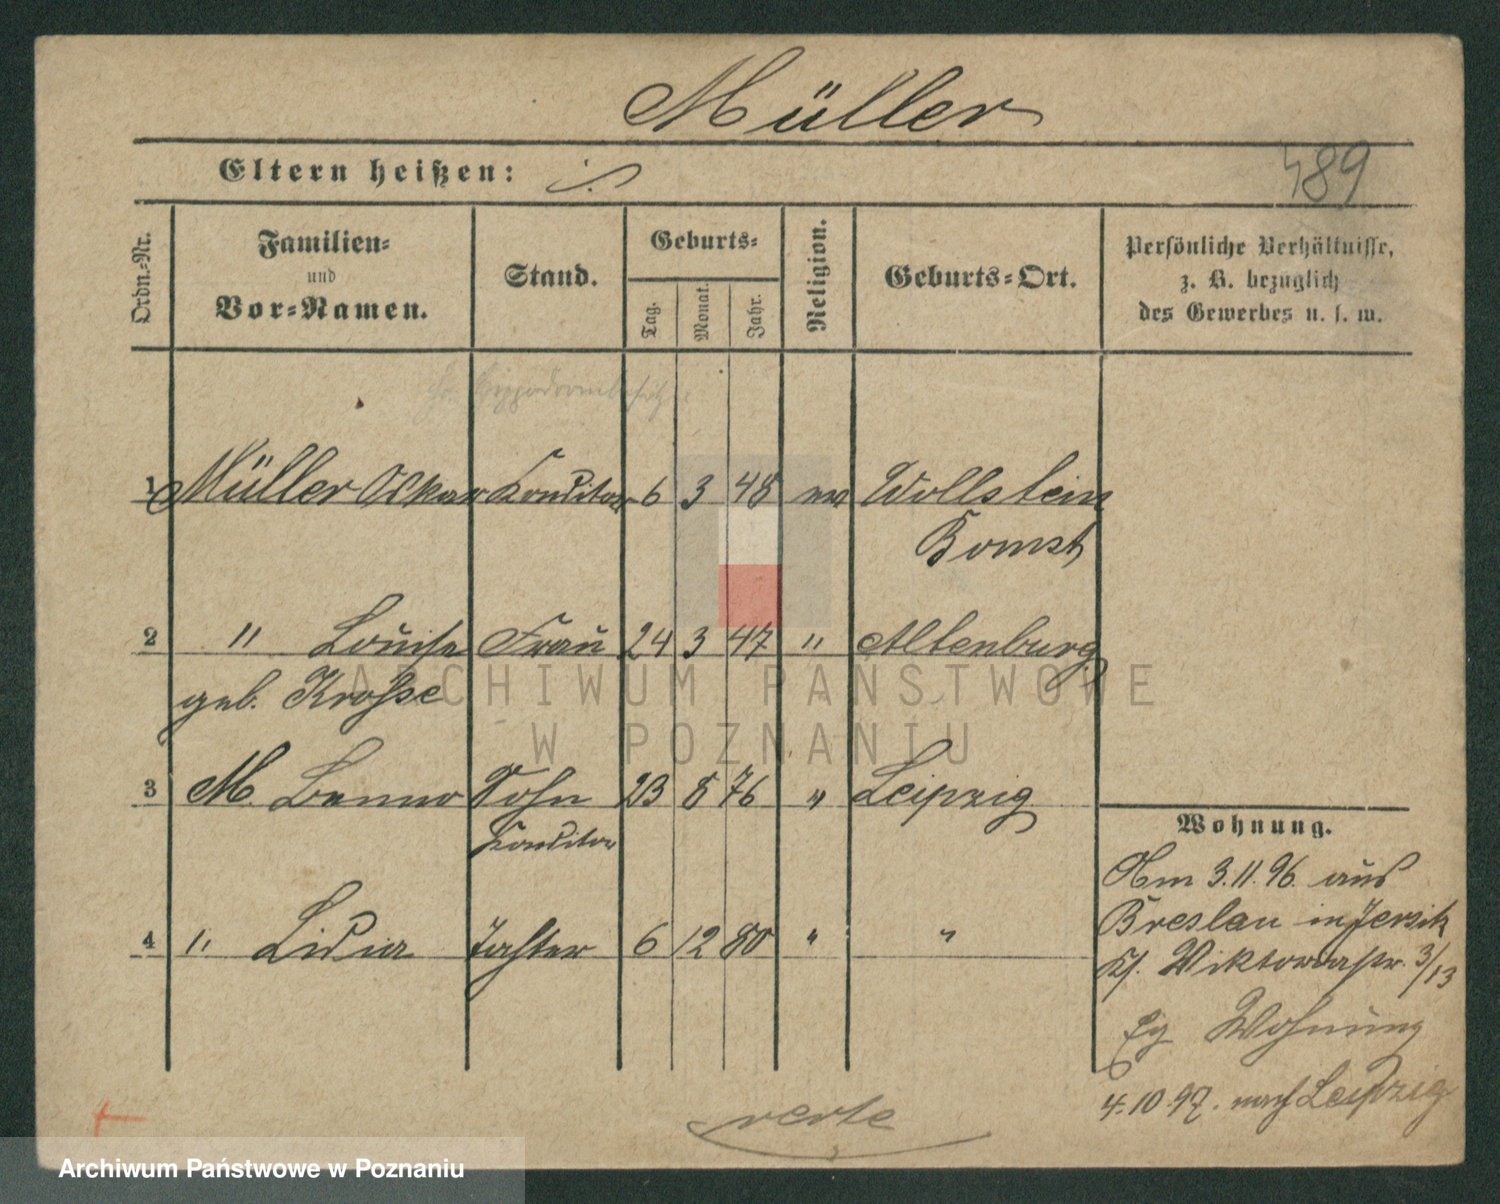 Müller
Eltern heißen: ./.
489
Ordn.-Nr. Familien- und Vor-Namen. Stand. Geburts- Tag. Monat. Jahr. Religion. Geburts-Ort. Persönliche Verhältnisse, z. B. bezüglich des Gewerbes u. s. w.
1 Müller Oskar Konditor 6 3 48 ev Wollstein
Bomst
2 " Louise Frau 24 3 47 " Altenburg
geb. Krohse
ARCHIWUM PAŃSTWOWE
W POZNANIU
3 M. Benno Sohn 23 8 76 " Leipzig
Konditor
4 " Lidia Tochter 6 12 80 " "
Wohnung.
Am 3.11.96. aus
Breslau in Jersitz
Viktoriastr. 3/13
Eg Wohnung
4.10.97. nach Leipzig
verte
Archiwum Państwowe w Poznaniu